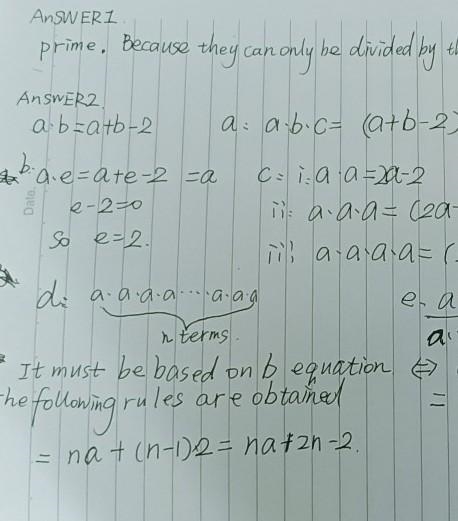 ANSWER1.
prime. Because they can only be divided by th
ANSWER2.
a·b=a+b-2 a: a·b·c= (a+b-2)
b: a·e=a+e-2 =a c: i: a·a=2a-2
Date.
e-2=0 ii: a·a·a=(2a-
so e=2. iii: a·a·a·a=(
d: a·a·a·a···a·a·a e. a
n terms. a·
It must be based on b equation ⇔
he following rules are obtained =
= na+(n-1)2=na+2n-2.